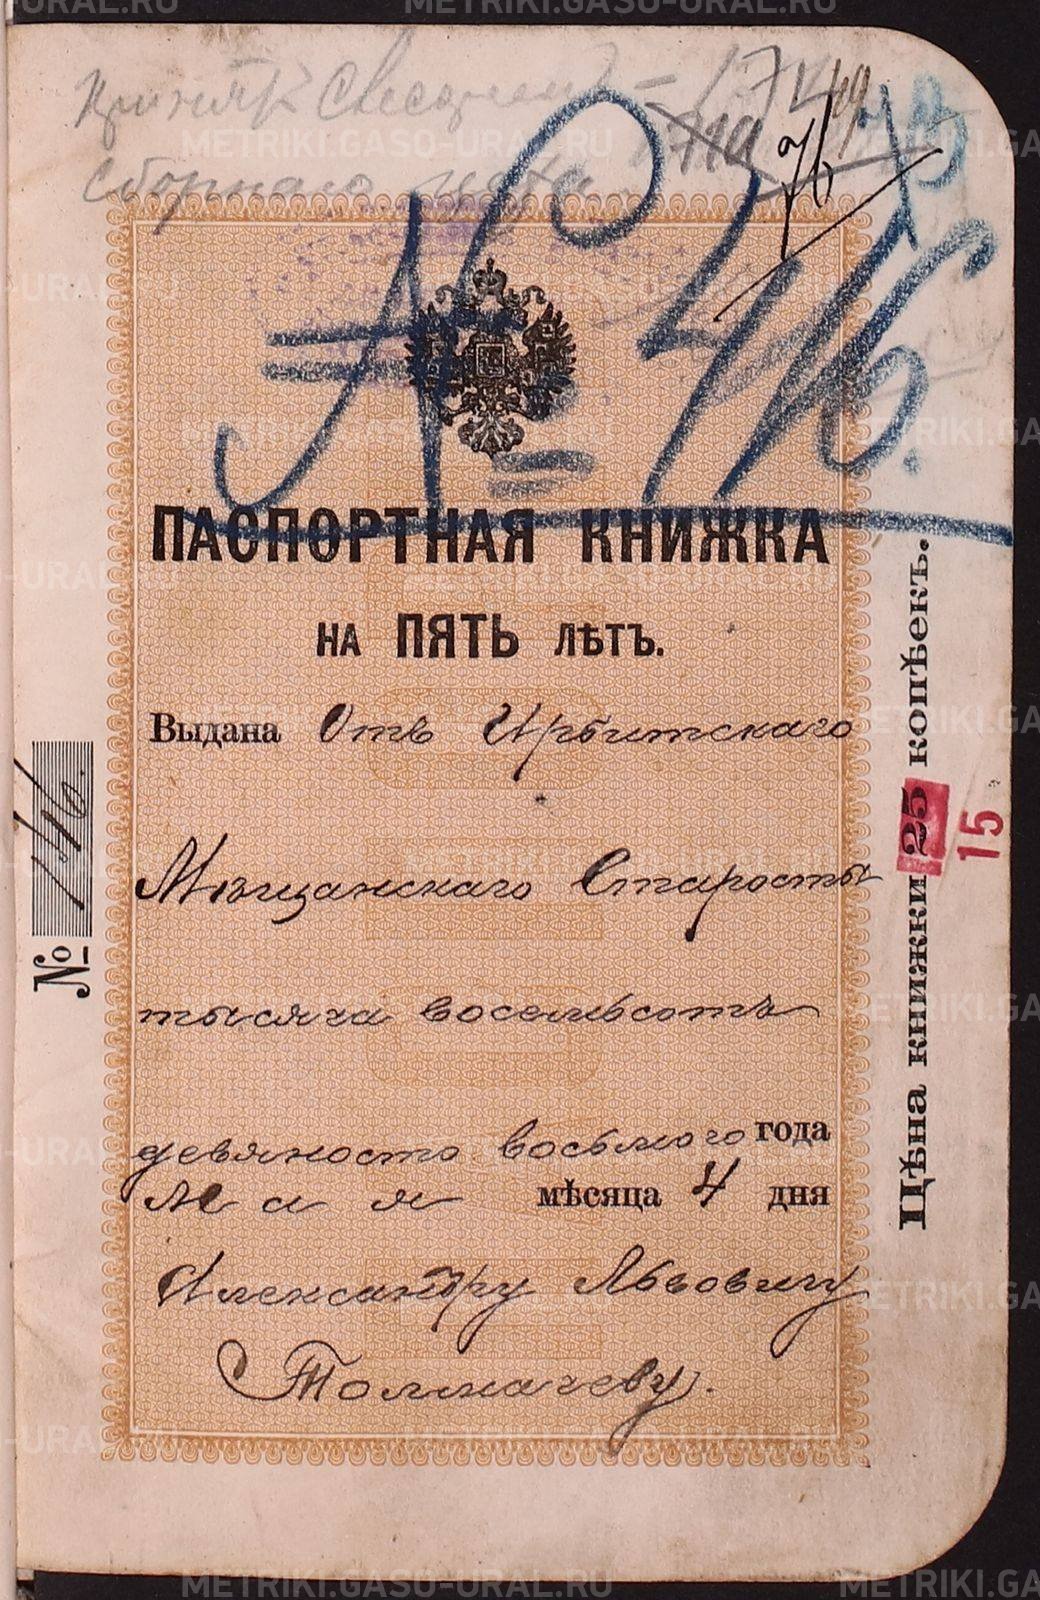 сборнаго
№ 446.
ПАСПОРТНАЯ КНИЖКА
НА ПЯТЬ ЛѢТЪ.
Выдана Отъ Ирбитскаго
Мѣщанскаго Старосты
тысяча восемьсотъ
девяносто восьмого года
Мая мѣсяца 4 дня
Александру Львовичу
Толмачеву.
№ 446.
Цѣна книжки 25 копѣекъ.
15
METRIKI.GASO-URAL.RU